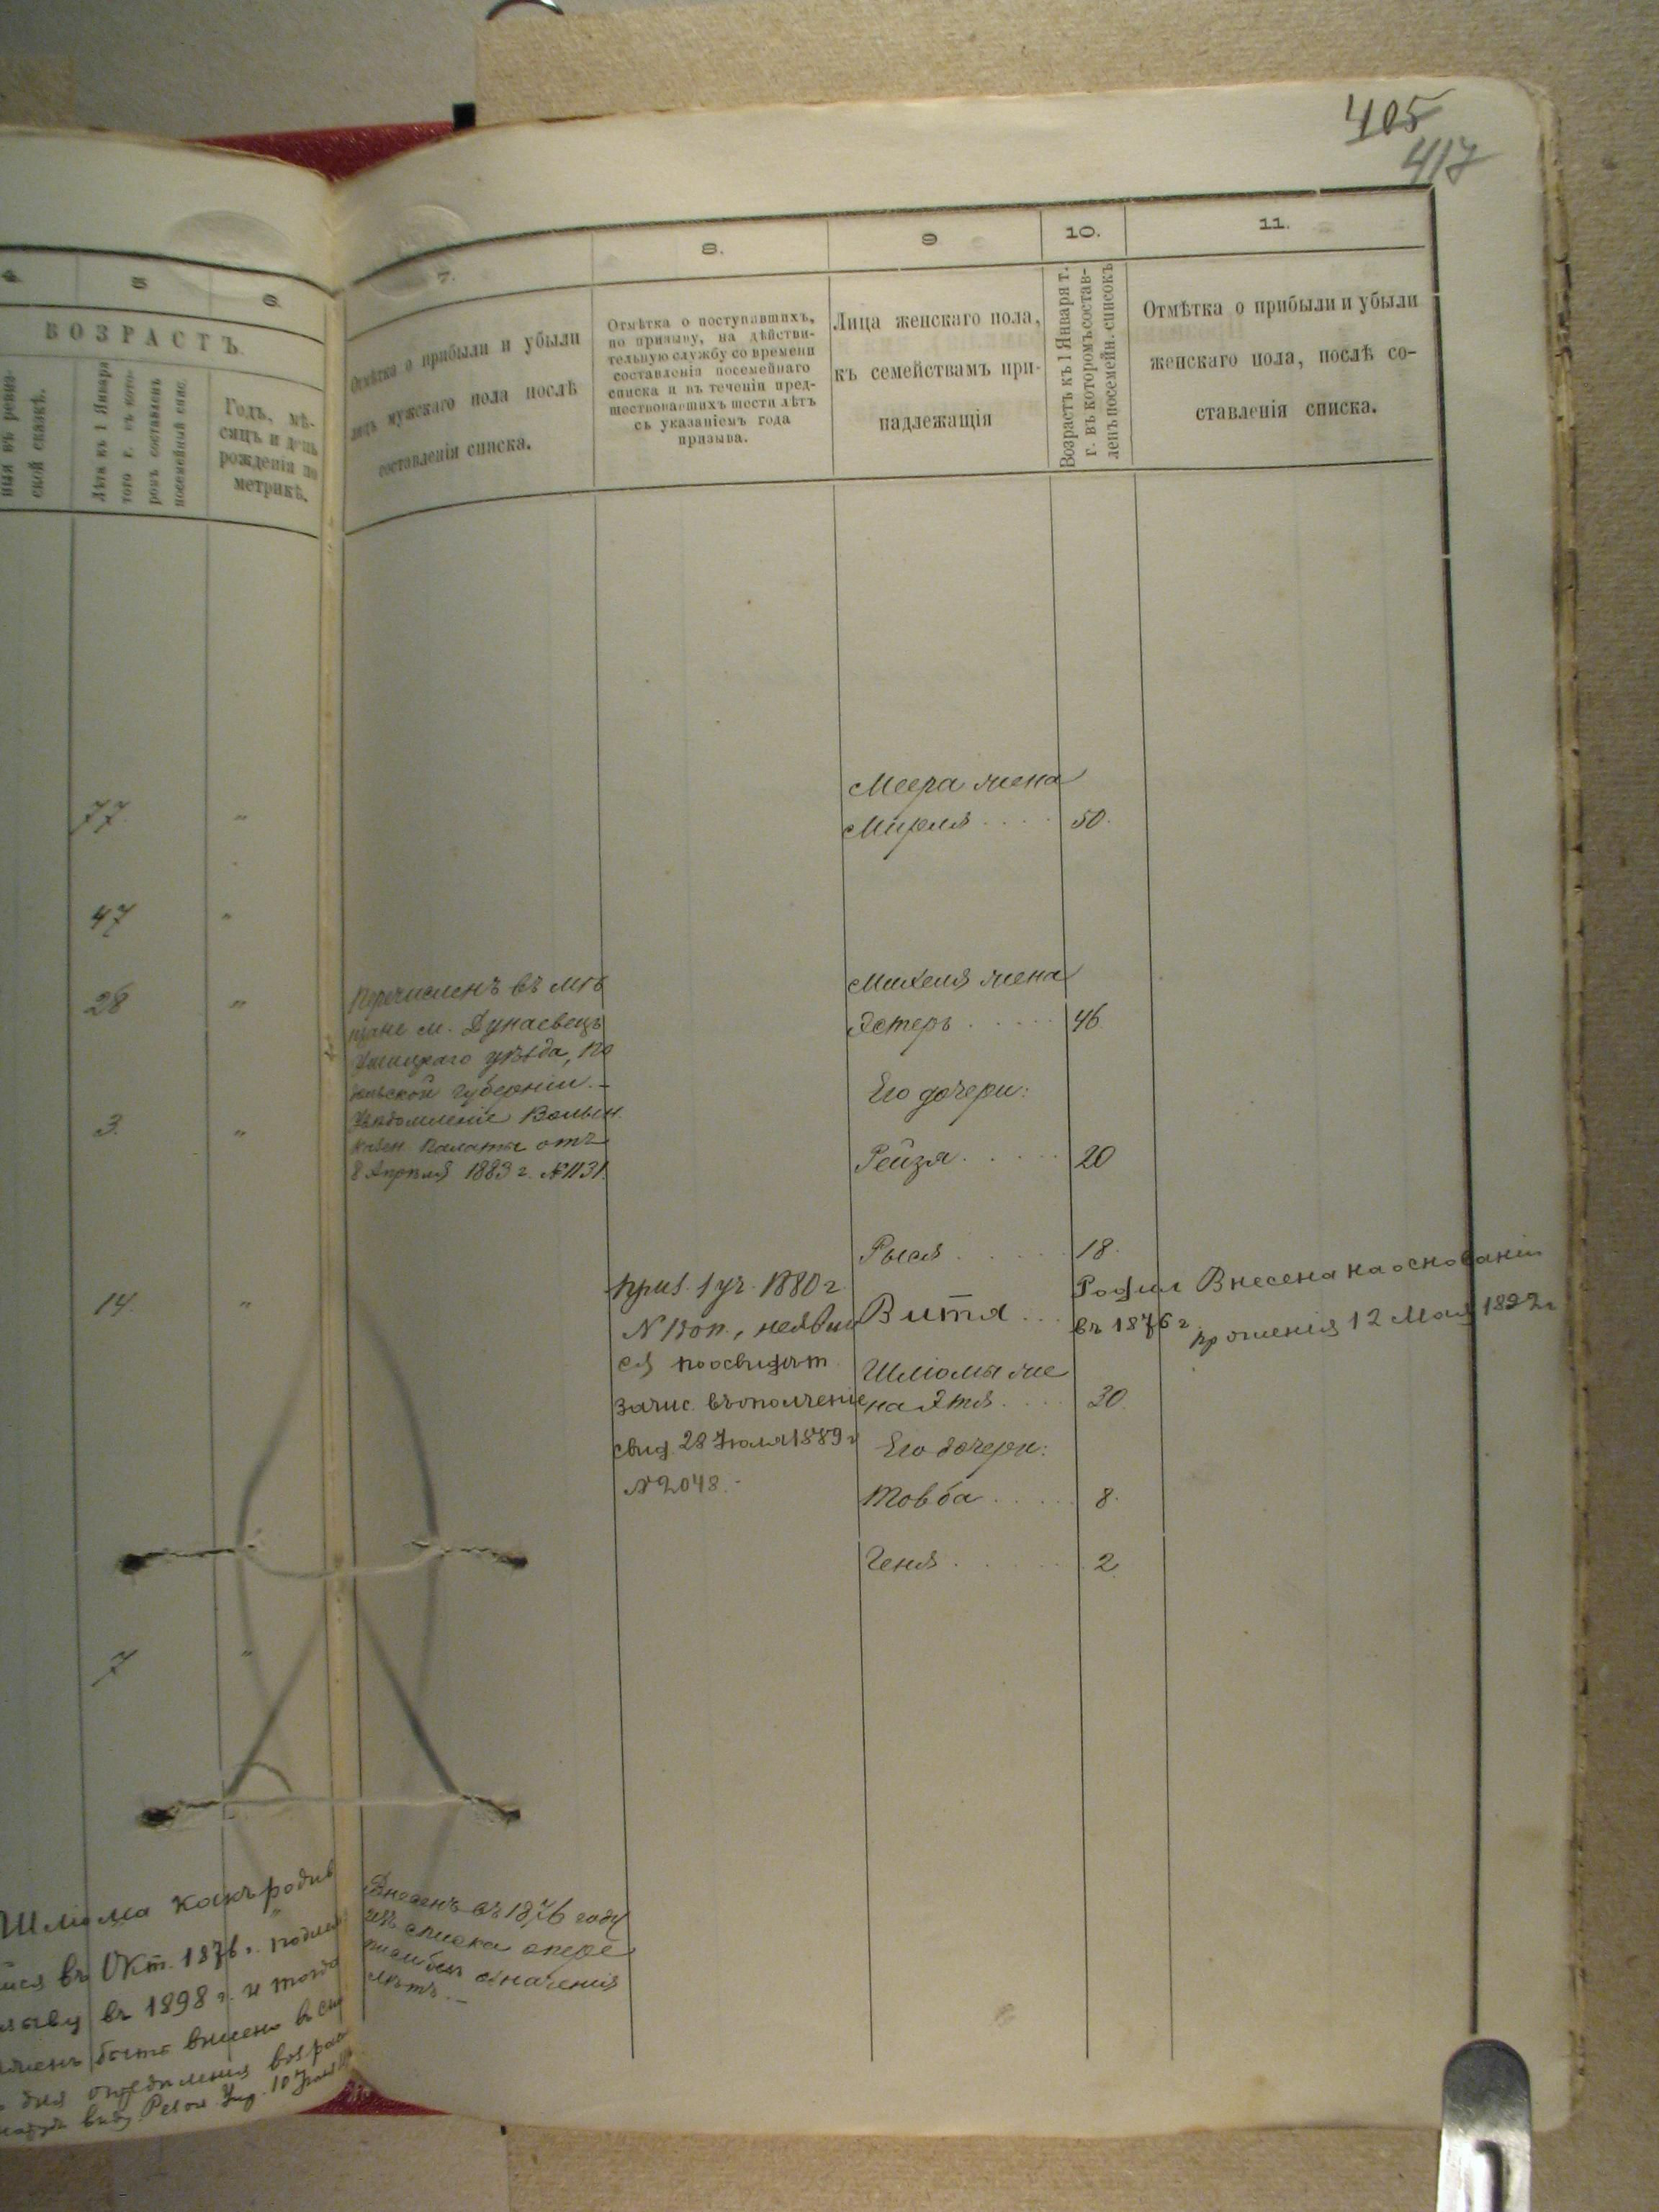 405
417
4
5
6.
7.
8.
9
10.
11.
ВОЗРАСТЪ
ской сказкѣ.
Лѣта къ 1 Января
того г. въ кото-
ромъ составленъ
посемейный спис.
Годъ, мѣ-
сяцъ и день
рожденія по
метрикѣ.
Отмѣтка о прибыли и убыли
лицъ мужскаго пола послѣ
составленія списка.
Отмѣтка о поступавшихъ,
по призыву, на дѣйстви-
тельную службу со времени
составленія посемейнаго
списка и въ теченіи пред-
шествовавшихъ шести лѣтъ
съ указаніемъ года
призыва.
Лица женскаго пола,
къ семействамъ при-
надлежащія
Возрастъ къ 1 Января т.
г. въ которомъ состав-
ленъ посемейн. списокъ
Отмѣтка о прибыли и убыли
женскаго пола, послѣ со-
ставленія списка.
Меера жена
77. "
Мирля . . . . 50.
47 "
28 "
Перечисленъ въ мѣ
щане м. Дунаевецъ
Ушицкаго уѣзда, По
дольской губерніи. –
Увѣдомленіе Волын.
Казен. Палаты отъ
8 Апрѣля 1883 г. № 1131.
Михеля жена
Эстеръ . . . . . 46.
Его дочери:
3. "
Рейзя . . . . . 20
Рыся . . . . . 18.
14. "
Приз. 1 уч. 1880 г.
N 13 оп., неявил
ся по освидѣт
зачис. въ ополченіе
свид. 28 Іюля 1889 г
N 2048. -
Витя . . .
Родил
въ 1876 г
Внесена на основаніи
прошенія 12 Мая 1892 г
Шліомы же
на Этя . . . . 30.
Его дочери:
Товба . . . . . 8.
Геня . . . . . . 2.
7 "
Шліома какъ родив
шійся въ Окт. 1876 г.
въ 1898 г. и тогда
быть внесенъ въ
для опредѣленія возра
виду. 10
Внесенъ въ 1876 году
изъ списка
безъ означенія
лѣтъ. –